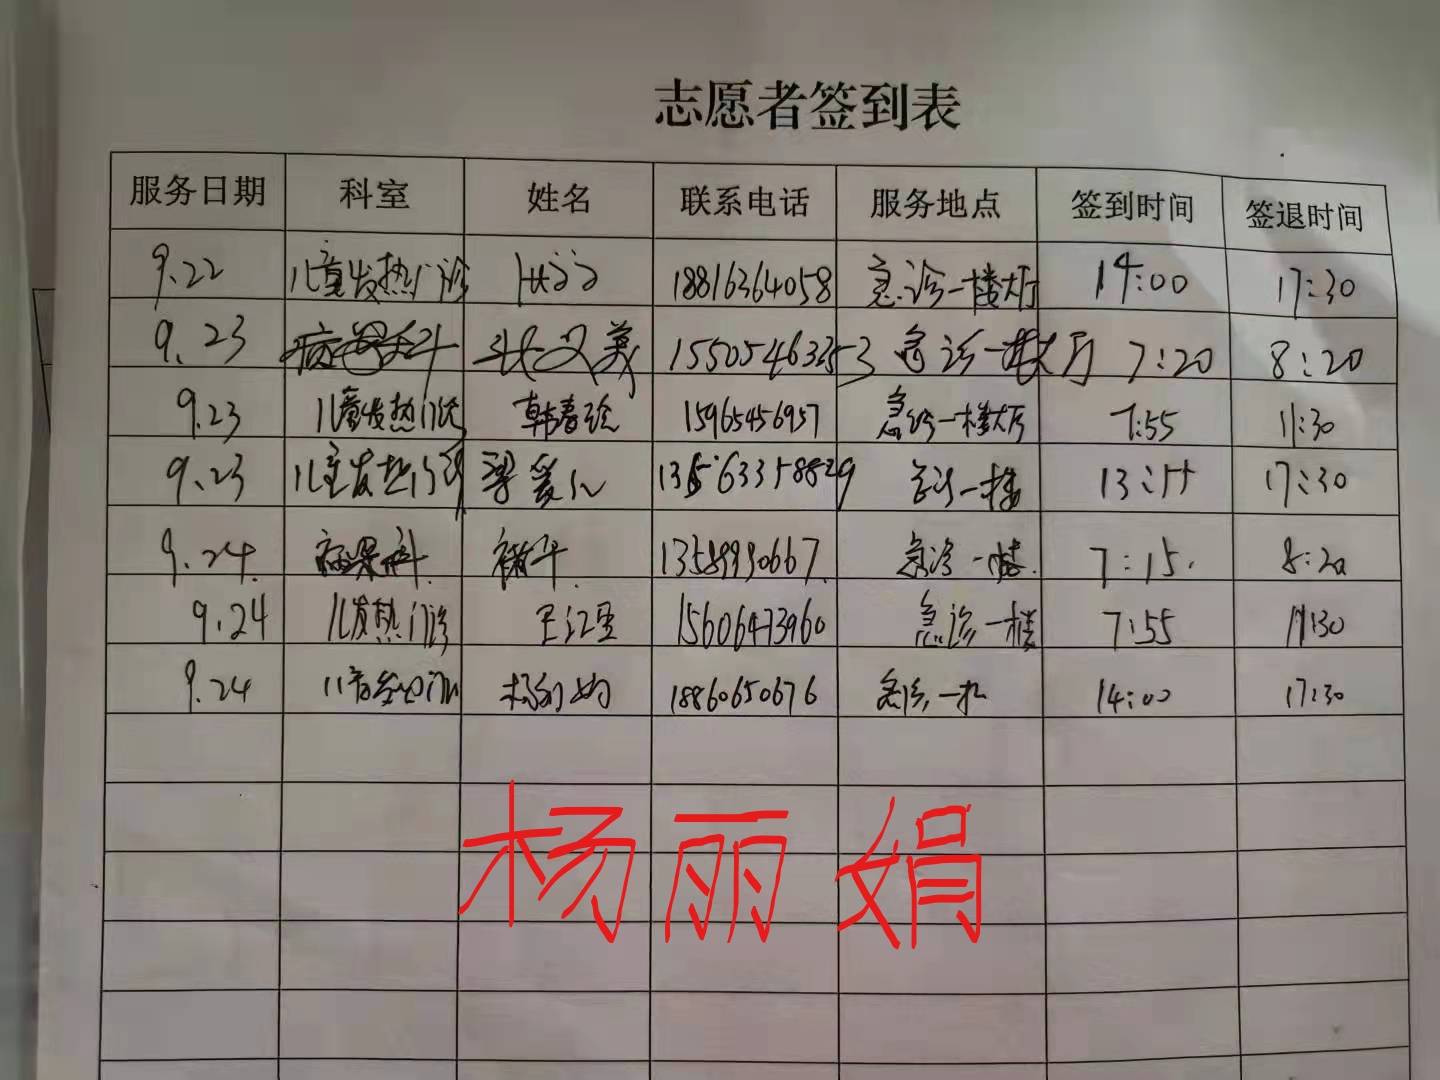 志愿者签到表
服务日期 科室 姓名 联系电话 服务地点 签到时间 签退时间
9.22 儿童发热门诊 18816364058 急诊一楼大厅 14:00 17:30
9.23 病案科 急诊一楼大厅 7:20 8:20
9.23 儿童发热门诊 韩春 15965456957 急诊一楼大厅 7:55 11:30
9.23 儿童发热门诊 梁爱 急诊一楼 13:55 17:30
9.24. 病案科. 13589990667. 急诊一楼. 7:15. 8:20
9.24 儿发热门诊 王江 15606473960 急诊一楼 7:55 11:30
9.24 儿童发热门诊 杨丽娟 18860650676 急诊一楼 14:00 17:30
杨丽娟